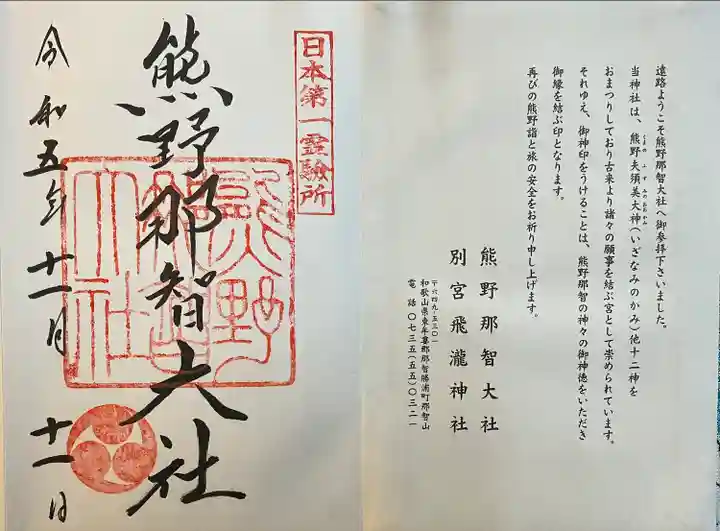 遠路ようこそ熊野那智大社へ御参拝下さいました。
当神社は、熊野夫須美大神(いざなみのかみ)他十二神を
くまの ふすみのおおかみ
おまつりしており古来より諸々の願事を結ぶ宮として崇められています。
それゆえ、御神印をうけることは、熊野那智の神々の御神徳をいただき
御縁を結ぶ印となります。
再びの熊野詣と旅の安全をお祈り申し上げます。
熊野那智大社
別宮飛瀧神社
〒六四九-五三〇一
和歌山県東牟婁郡那智勝浦町那智山
電話〇七三五(五五)〇三二一
日本第一霊験所
熊野那智大社
熊野
那智
大社
令和五年十一月十一日